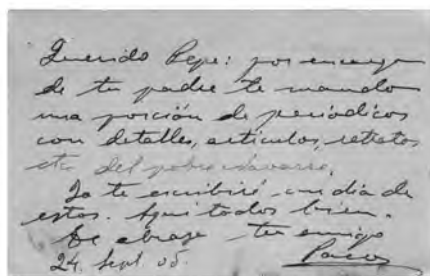 Querido Pepe: por encargo
de tu padre te mando
una porción de periódicos
con detalles, artículos, retratos
etc del pobre Navarro.
Ya te escribiré un dia de
estos. Aqui todos bien.
Te abraza tu amigo
Paco
24 Sept. 05.